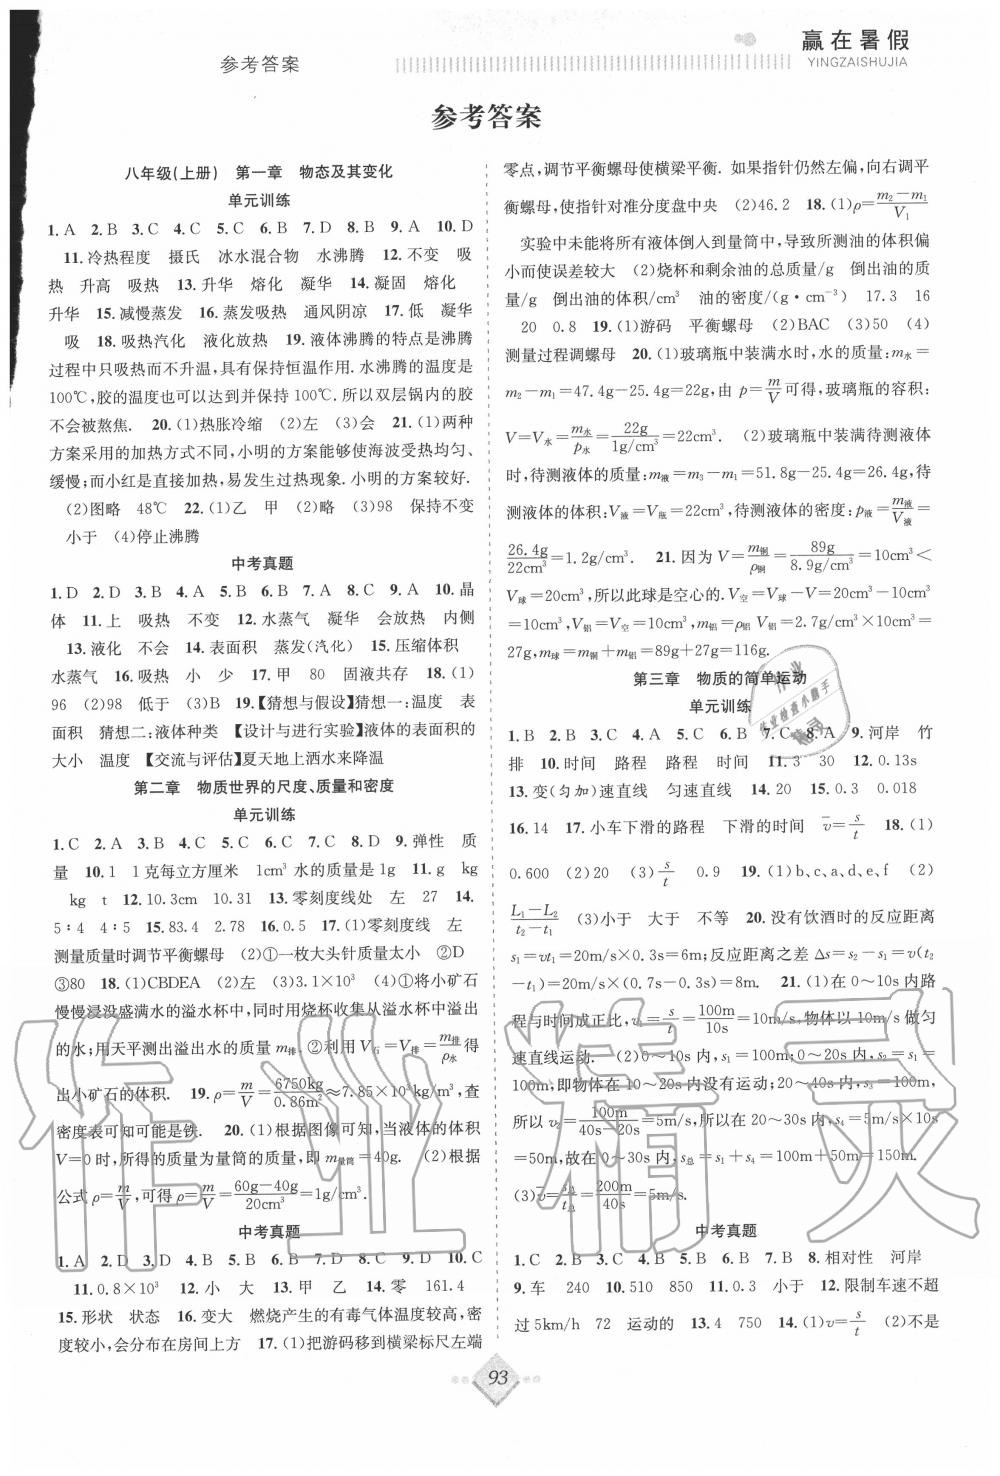 参考答案
赢在暑假
YINGZAISHUJIA
参考答案
八年级(上册)　第一章　物态及其变化
单元训练
1. A　2. B　3. C　4. C　5. C　6. B　7. D　8. B　9. A　10. D
11. 冷热程度　摄氏　冰水混合物　水沸腾　12. 不变　吸
热　升高　吸热　13. 升华　熔化　凝华　14. 凝固　熔化
升华　15. 减慢蒸发　16. 蒸发吸热　通风阴凉　17. 低　凝华
吸　18. 吸热汽化　液化放热　19. 液体沸腾的特点是沸腾
过程中只吸热而不升温,具有保持恒温作用. 水沸腾的温度是
100℃,胶的温度也可以达到并保持 100℃. 所以双层锅内的胶
不会被熬焦.　20. (1)热胀冷缩　(2)左　(3)会　21. (1)两种
方案采用的加热方式不同,小明的方案能够使海波受热均匀、
缓慢;而小红是直接加热,易发生过热现象. 小明的方案较好.
(2)图略　48℃　22. (1)乙　甲　(2)略　(3)98　保持不变
小于　(4)停止沸腾
中考真题
1. D　2. D　3. B　4. A　5. B　6. B　7. A　8. C　9. A　10. 晶
体　11. 上　吸热　不变　12. 水蒸气　凝华　会放热　内侧
13. 液化　不会　14. 表面积　蒸发(汽化)　15. 压缩体积
水蒸气　16. 吸热　小　少　17. 甲　80　固液共存　18. (1)
96　(2)98　低于　(3)B　19.【猜想与假设】猜想一:温度　表
面积　猜想二:液体种类　【设计与进行实验】液体的表面积的
大小　温度　【交流与评估】夏天地上洒水来降温
第二章　物质世界的尺度、质量和密度
单元训练
1. C　2. A　3. B　4. A　5. C　6. C　7. C　8. D　9. 弹性　质
量　10. 1　1 克每立方厘米　1cm³ 水的质量是 1g　11. g　kg
kg　t　12. 10.3cm　10.31　13. 零刻度线处　左　27　14.
5∶4　4∶5　15. 83.4　2.78　16. 0.5　17. (1)零刻度线　左
测量质量时调节平衡螺母　(2)①一枚大头针质量太小　②D
③80　18. (1)CBDEA　(2)左　(3)3.1×10³　(4)①将小矿石
慢慢浸没盛满水的溢水杯中,同时用烧杯收集从溢水杯中溢出
的水;用天平测出溢出水的质量 m排. ②利用 V石=V排=m排/ρ水 得
出小矿石的体积.　19. ρ=m/V=6750kg/0.86m³≈7.85×10³kg/m³,查
密度表可知可能是铁.　20. (1)根据图像可知,当液体的体积
V=0 时,所得的质量为量筒的质量,即 m量筒=40g.　(2)根据
公式 ρ=m/V,可得 ρ=m/V=(60g-40g)/20cm³=1g/cm³.
中考真题
1. A　2. D　3. D　4. B　5. B　6. B　7. C　8. D　9. D　10. C
11. 0.8×10³　12. 小　大　13. 甲　乙　14. 零　161.4
15. 形状　状态　16. 变大　燃烧产生的有毒气体温度较高,密
度较小,会分布在房间上方　17. (1)把游码移到横梁标尺左端
零点,调节平衡螺母使横梁平衡. 如果指针仍然左偏,向右调平
衡螺母,使指针对准分度盘中央　(2)46.2　18. (1)ρ=(m₂-m₁)/V₁
实验中未能将所有液体倒入到量筒中,导致所测油的体积偏
小而使误差较大　(2)烧杯和剩余油的总质量/g　倒出油的质
量/g　倒出油的体积/cm³　油的密度/(g·cm⁻³)　17.3　16
20　0.8　19. (1)游码　平衡螺母　(2)BAC　(3)50　(4)
测量过程调螺母　20. (1)玻璃瓶中装满水时,水的质量:m水=
m₂-m₁=47.4g-25.4g=22g,由 ρ=m/V可得,玻璃瓶的容积:
V=V水=m水/ρ水=22g/(1g/cm³)=22cm³.　(2)玻璃瓶中装满待测液体
时,待测液体的质量:m液=m₃-m₁=51.8g-25.4g=26.4g,待
测液体的体积:V液=V瓶=22cm³,待测液体的密度:ρ液=m液/V液=
26.4g/22cm³=1.2g/cm³.　21. 因为 V=m铜/ρ铜=89g/(8.9g/cm³)=10cm³<
V球=20cm³,所以此球是空心的. V空=V球-V=20cm³-10cm³
=10cm³,V铝=V空=10cm³,m铝=ρ铝V空=2.7g/cm³×10cm³=
27g,m球=m铜+m铝=89g+27g=116g.
第三章　物质的简单运动
单元训练
1. B　2. B　3. C　4. A　5. C　6. B　7. C　8. A　9. 河岸　竹
排　10. 时间　路程　路程　时间　11. 3　30　12. 0.13s
13. 变(匀加)速直线　匀速直线　14. 20　15. 0.3　0.018
16. 14　17. 小车下滑的路程　下滑的时间　v̄=s/t　18. (1)
0.600　(2)20　(3)s/t　0.9　19. (1)b、c、a、d、e、f　(2)
(L₁-L₂)/(t₂-t₁)　(3)小于　大于　不等　20. 没有饮酒时的反应距离
s₁=vt₁=20m/s×0.3s=6m;反应距离之差 Δs=s₂-s₁=v(t₂
-t₁)=20m/s×(0.7s-0.3s)=8m.　21. (1)在 0～10s 内路
程与时间成正比,v₁=s/t=100m/10s=10m/s,物体以 10m/s 做匀
速直线运动.　(2)0～10s 内,s₁=100m;0～20s 内,s₂=s₁=
100m,即物体在 10～20s 内没有运动;20～40s 内,s₃=100m,
所以 v₂=100m/(40s-20s)=5m/s,所以在 20～30s 内,s₄=5m/s×10s
=50m,故在 0～30s 内,s总=s₁+s₄=100m+50m=150m.
(3)v̄=s总/t总=200m/40s=5m/s.
中考真题
1. C　2. B　3. C　4. B　5. B　6. B　7. B　8. 相对性　河岸
9. 车　240　10. 510　850　11. 0.3　小于　12. 限制车速不超
过 5km/h　72　运动的　13. 4　750　14. (1)v=s/t　(2)不是
93
作业精灵
作业
作业检查小助手
精灵